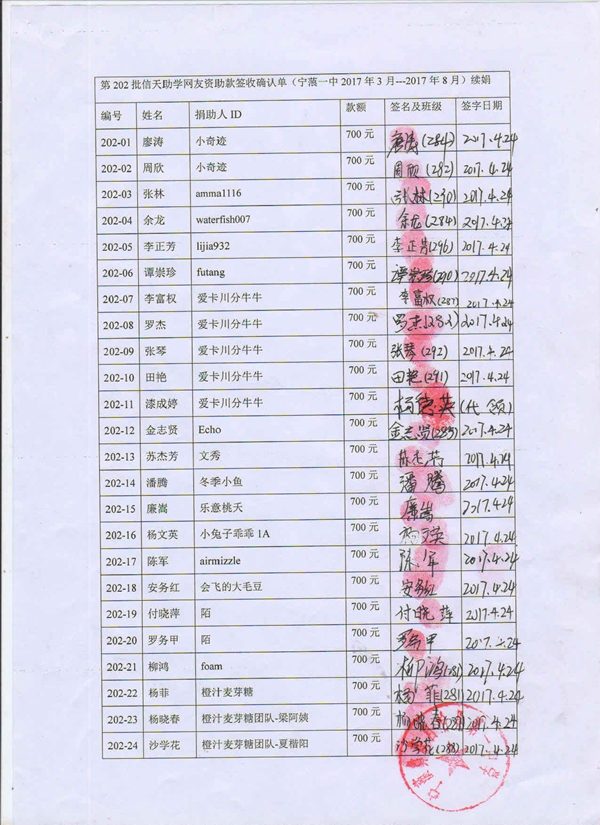 第 202 批信天助学网友资助款签收确认单（宁蒗一中 2017 年 3 月---2017 年 8 月）续娟
编号 姓名 捐助人 ID 款额 签名及班级 签字日期
202-01 廖涛 小奇迹 700 元 (284) 2017.4.24
202-02 周欣 小奇迹 700 元 周欣(292) 2017.4.24
202-03 张林 amma1116 700 元 张林(290) 2017.4.24
202-04 余龙 waterfish007 700 元 余龙(284) 2017.4.24
202-05 李正芳 lijia932 700 元 李正芳(296) 2017.4.24
202-06 谭崇珍 futang 700 元 谭崇珍(290) 2017.4.24
202-07 李富权 爱卡川分牛牛 700 元 李富权(287) 2017.4.24
202-08 罗杰 爱卡川分牛牛 700 元 罗杰(282) 2017.4.24
202-09 张琴 爱卡川分牛牛 700 元 张琴(292) 2017.4.24
202-10 田艳 爱卡川分牛牛 700 元 田艳(291) 2017.4.24
202-11 漆成婷 爱卡川分牛牛 700 元 杨德英(代领)
202-12 金志贤 Echo 700 元 金志贤(285) 2017.4.24
202-13 苏杰芳 文秀 700 元 2017.4.24
202-14 潘腾 冬季小鱼 700 元 潘腾 2017.4.24
202-15 廉嵩 乐意桃夭 700 元 廉嵩 2017.4.24
202-16 杨文英 小兔子乖乖 1A 700 元 杨文英 2017.4.24
202-17 陈军 airmizzle 700 元 陈军 2017.4.24
202-18 安务红 会飞的大毛豆 700 元 安务红 2017.4.24
202-19 付晓萍 陌 700 元 付晓萍 2017.4.24
202-20 罗务甲 陌 700 元 罗务甲 2017.4.24
202-21 柳鸿 foam 700 元 柳鸿(281) 2017.4.24
202-22 杨菲 橙汁麦芽糖 700 元 杨菲(281) 2017.4.24
202-23 杨晓春 橙汁麦芽糖团队-梁阿姨 700 元 杨晓春(289) 2017.4.24
202-24 沙学花 橙汁麦芽糖团队-夏楷阳 700 元 沙学花(288) 2017.4.24